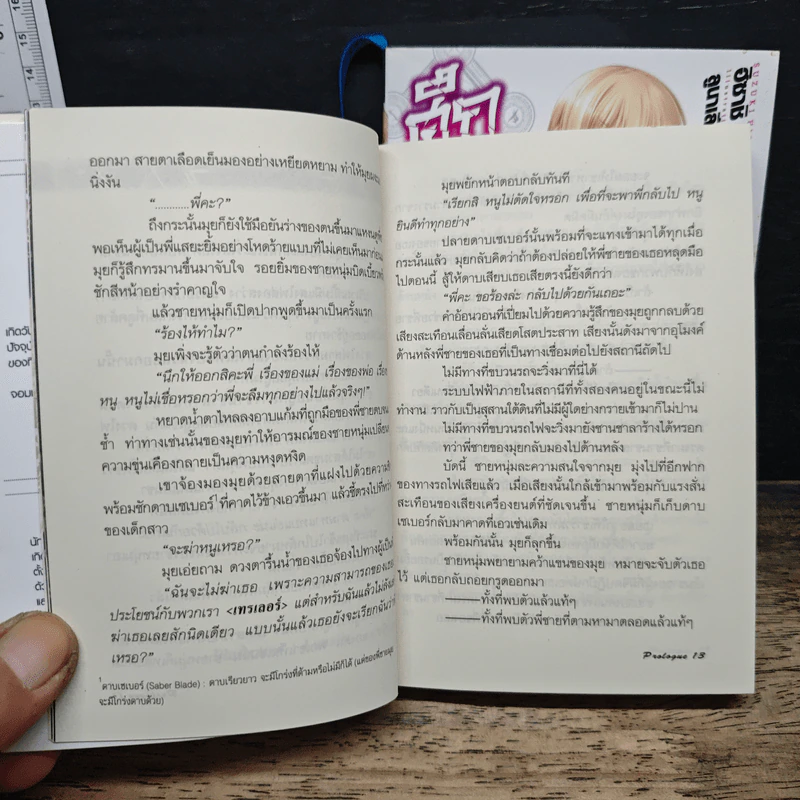 ออกมา สายตาเลือดเย็นมองอย่างเหยียดหยาม ทำให้มุย
นิ่งงัน
“............พี่คะ?”
ถึงกระนั้นมุยก็ยังใช้มือยันร่างของตนขึ้นมาแหงนดูพี่
พอเห็นผู้เป็นพี่แสยะยิ้มอย่างโหดร้ายแบบที่ไม่เคยเห็นมาก่อน
มุยก็รู้สึกทรมานขึ้นมาจับใจ รอยยิ้มของชายหนุ่มบิดเบี้ยว
ชักสีหน้าอย่างรำคาญใจ
แล้วชายหนุ่มก็เปิดปากพูดขึ้นมาเป็นครั้งแรก
“ร้องไห้ทำไม?”
มุยเพิ่งจะรู้ตัวว่าตนกำลังร้องไห้
“นึกให้ออกสิคะพี่ เรื่องของแม่ เรื่องของพ่อ
หนู หนูไม่เชื่อหรอกว่าพี่จะลืมทุกอย่างไปแล้วจริงๆ!”
หยาดน้ำตาไหลลงอาบแก้มที่ถูกมือของพี่ชายตบจน
ซ้ำ ท่าทางเช่นนั้นของมุยทำให้อารมณ์ของชายหนุ่มเปลี่ยน
ความขุ่นเคืองกลายเป็นความหงุดหงิด
เขาจ้องมองมุยด้วยสายตาที่แฝงไปด้วยความ
พร้อมชักดาบเซเบอร์¹ ที่คาดไว้ข้างเอวขึ้นมา แล้วชี้ตรงไปที่
ของเด็กสาว
“จะฆ่าหนูเหรอ?”
มุยเอ่ยถาม ดวงตารื้นน้ำของเธอจ้องไปทางผู้เป็น
“ฉันจะไม่ฆ่าเธอ เพราะความสามารถของเธอ
ประโยชน์กับพวกเรา <เทรเลอร์> แต่สำหรับฉันแล้วไม่
ฆ่าเธอเลยสักนิดเดียว แบบนั้นแล้วเธอยังจะเรียกฉันว่า
เหรอ?”
¹ดาบเซเบอร์ (Saber Blade) : ดาบเรียวยาว จะมีโกร่งที่ด้ามหรือไม่มีก็ได้ (แต่ของพี่ชายมุย
จะมีโกร่งดาบด้วย)
มุยพยักหน้าตอบกลับทันที
“เรียกสิ หนูไม่ตัดใจหรอก เพื่อที่จะพาพี่กลับไป หนู
ยินดีทำทุกอย่าง”
ปลายดาบเซเบอร์นั้นพร้อมที่จะแทงเข้ามาได้ทุกเมื่อ
กระนั้นแล้ว มุยกลับคิดว่าถ้าต้องปล่อยให้พี่ชายของเธอหลุดมือ
ไปตอนนี้ สู้ให้ดาบเสียบเธอเสียตรงนี้ยังดีกว่า
“พี่คะ ขอร้องล่ะ กลับไปด้วยกันเถอะ”
คำอ้อนวอนที่เปี่ยมไปด้วยความรู้สึกของมุยถูกกลบด้วย
เสียงสะเทือนเลื่อนลั่นเสียดโสตประสาท เสียงนั้นดังมาจากอุโมงค์
ด้านหลังพี่ชายของเธอที่เป็นทางเชื่อมต่อไปยังสถานีถัดไป
ไม่มีทางที่ขบวนรถจะวิ่งมาที่นี่ได้
ระบบไฟฟ้าภายในสถานีที่ทั้งสองคนอยู่ในขณะนี้ไม่
ทำงาน ราวกับเป็นสุสานใต้ดินที่ไม่มีผู้ใดย่างกรายเข้ามาก็ไม่ปาน
ไม่มีทางที่ขบวนรถไฟจะวิ่งมายังชานชาลาร้างได้หรอก
ทว่าพี่ชายของมุยกลับมองไปด้านหลัง
บัดนี้ ชายหนุ่มละความสนใจจากมุย มุ่งไปที่อีกฟาก
ของทางรถไฟเสียแล้ว เมื่อเสียงนั้นใกล้เข้ามาพร้อมกับแรงสั่น
สะเทือนของเสียงเครื่องยนต์ที่ชัดเจนขึ้น ชายหนุ่มก็เก็บดาบ
เซเบอร์กลับมาคาดที่เอวเช่นเดิม
พร้อมกันนั้น มุยก็ลุกขึ้น
ชายหนุ่มพยายามคว้าแขนของมุย หมายจะจับตัวเธอ
ไว้ แต่เธอกลับถอยกรูดออกมา
———ทั้งที่พบตัวแล้วแท้ๆ
———ทั้งที่พบตัวพี่ชายที่ตามหามาตลอดแล้วแท้ๆ
Prologue 13